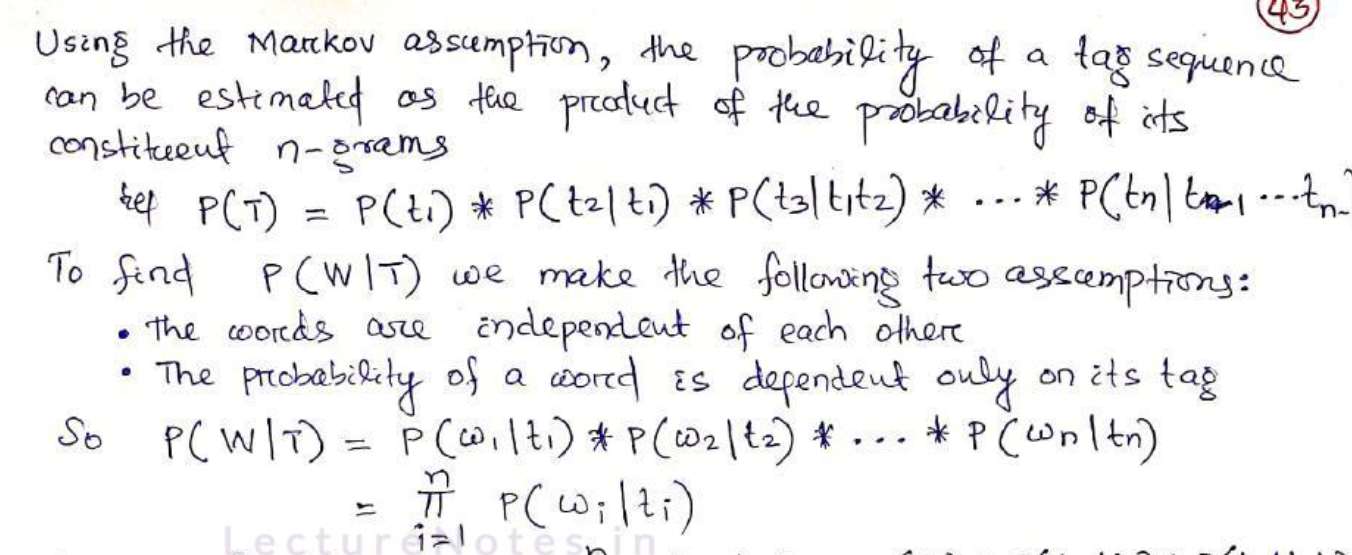 43
Using the Markov assumption, the probability of a tag sequence
can be estimated as the product of the probability of its
constituent n-grams
P(T) = P(t₁) * P(t₂|t₁) * P(t₃|t₁t₂) * ... * P(tn|tn-1 ...tn-
To find P(W|T) we make the following two assumptions:
• the words are independent of each other
• The probability of a word is dependent only on its tag
So P(W|T) = P(ω₁|t₁) * P(ω₂|t₂) * ... * P(ωn|tn)
n
= π P(ωi|ti)
i=1
LectureNotes.in